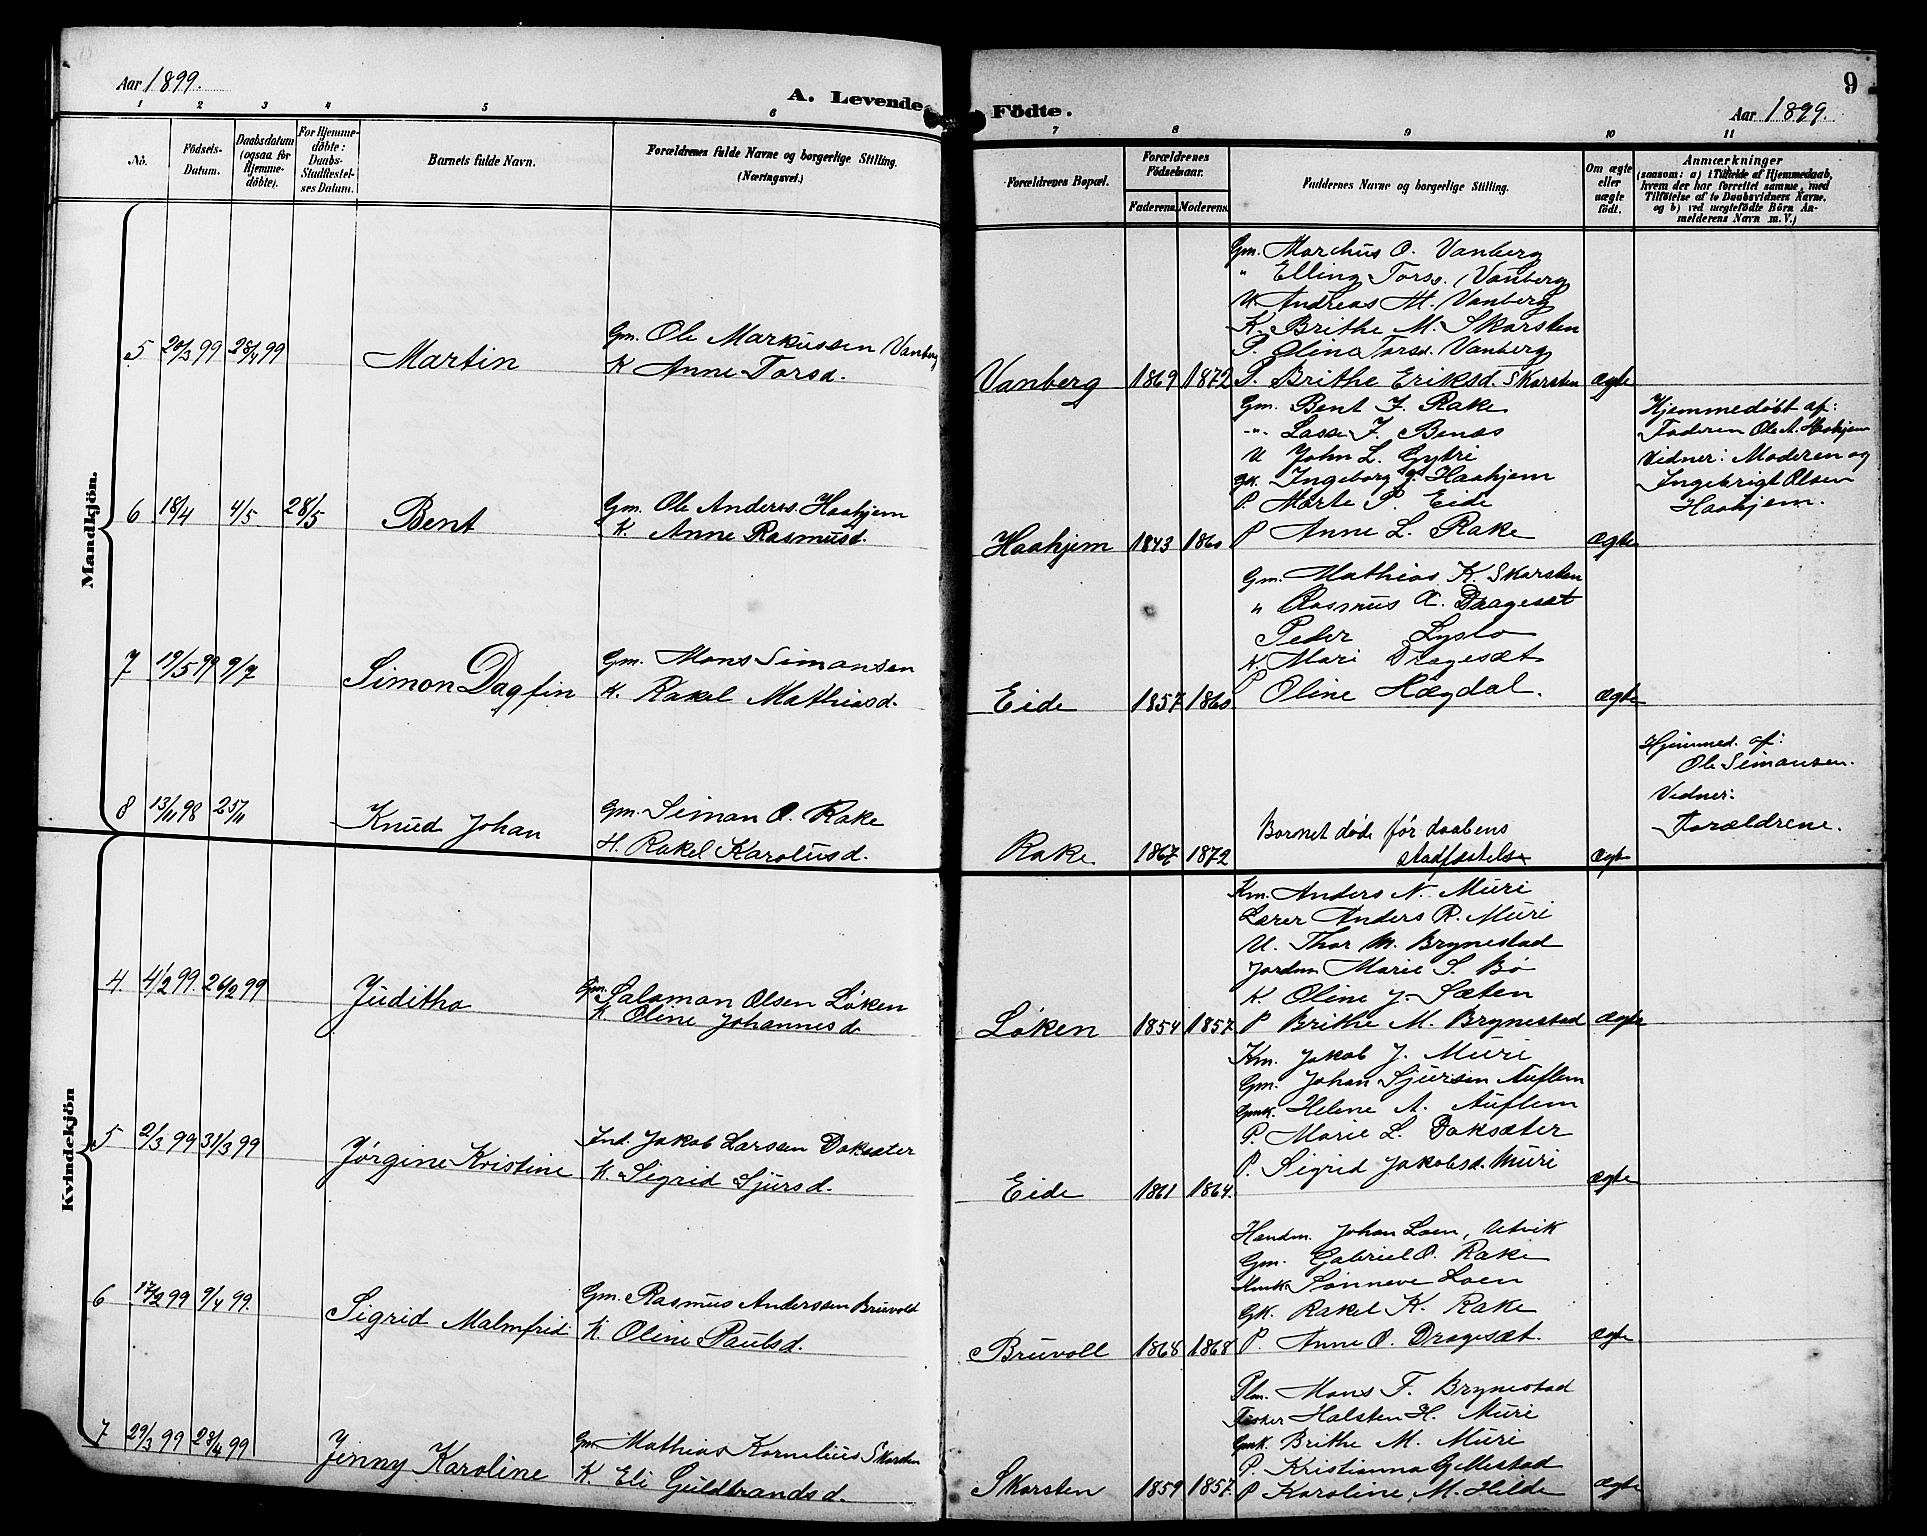 Aar 1899.
A. Levende
1 2 3 4 5 6
No.
Födsels-
Datum.
Daabsdatum
(ogsaa for
Hjemme-
döbte).
For Hjemme-
döbte:
Daabs-
Stadfestel-
ses Datum.
Barnets fulde Navn.
Forældrenes fulde Navne og borgerlige Stilling.
(Næringsvei.)
Mandkjön.
5 29/3 99 28/4 99 Martin
Gm. Ole Markussen Vanberg
K Anne Torsd.
6 18/4 4/5 28/5 Bent
Gm. Ole Anders. Haahjem
K. Anne Rasmusd.
7 19/5 99 9/7 Simon Dagfin
Gm. Mons Simonsen
K. Rakel Mathiasd.
8 13/11 98 25/11 Knud Johan
Gm. Simon O. Rake
H. Rakel Karolusd.
Kvindekjön
4. 4/2 99. 26/2 99 Juditha
Gm. Salamon Olsen Løken
K. Oline Johannesd
5 2/3 99 31/3 99 Jørgine Kristine
Ind. Jakob Larssen Doksæter
K. Sigrid Sjursd.
6 17/2 99 9/4 99. Sigrid Malmfrid
Gm. Rasmus Anderssen Bruvold
K Oline Paulsd.
7 29/3 99 28/4 99 Jenny Karoline
Gm. Mathias Kornelius Skarsten
K. Eli Guldbrandsd.
Födte.
9
Aar 1899.
7 8 9 10 11
Forældrenes Bopæl.
Forældrenes
Födselsaar.
Faderens. Moderens.
Faddernes Navne og borgerlige Stilling.
Om ægte
eller
uægte
født.
Anmærkninger
(saasom: a) i Tilfælde af Hjemmedaab,
hvem der har forrettet samme, med
Tilföielse af to Daabsvidners Navne,
og b) ved uegtefödte Börn An-
melderens Navn m. V.)
Gm. Marchus O. Vanberg
" Elling Torss. Vanberg
U. Andreas M. Vanberg
K. Brithe M. Skarsten
P. Olina Torsd. Vanberg
Vanberg 1869 1872 P. Brithe Eriksd. Skarsten ægte
Gm. Bent J. Rake
-"- Lasse J. Benes
U John L. Gytri
Gk. Ingeborg J. Haahjem
P. Marte P. Eide
Haahjem 1843 1860 P Anne L. Rake ægte
Hjemmedøbt af:
Faderen Ole A. Haahjem
Vidner: Moderen og
Ingebrigt Olsen
Haahjem.
Gm. Mathias K. Skarsten
" Rasmus A. Dragesæt
Peder Lyslo
K. Mari Dragesæt
Eide 1857 1860 P Oline Hægdal. ægte
Hjemmed. af:
Ole Simonsen.
Vidner:
Forældrene.
Barnet døde før daabens
stadfæstelse
Rake 1867 1872 ægte
Km. Anders N. Muri
Lærer Anders R. Muri
U. Thor M. Brynestad
Jordm Marie S. Bø
K. Oline J. Sæten
Løken 1854 1857 P Brithe M. Brynestad ægte
Km. Jakob J. Muri
Gm. Johan Sjursen Auflem
Gmk. Helene A. Auflem
P. Marie L. Doksæter
P. Sigrid Jakobsd. Muri
Eide 1861 1864. ægte
Handm. Johan Loen, Utvik
Gm. Gabriel O. Rake
Hmk Sønneve Loen
Gk. Rakel K. Rake
Bruvoll 1868 1868 P. Anne O. Dragesæt. ægte
Plm. Mons F. Brynestad
Fisker Halsten H. Muri
Gmk. Brithe M. Muri
P. Kristianna Gjellestad
Skarsten 1859 1857. P Karoline M. Hilde ægte